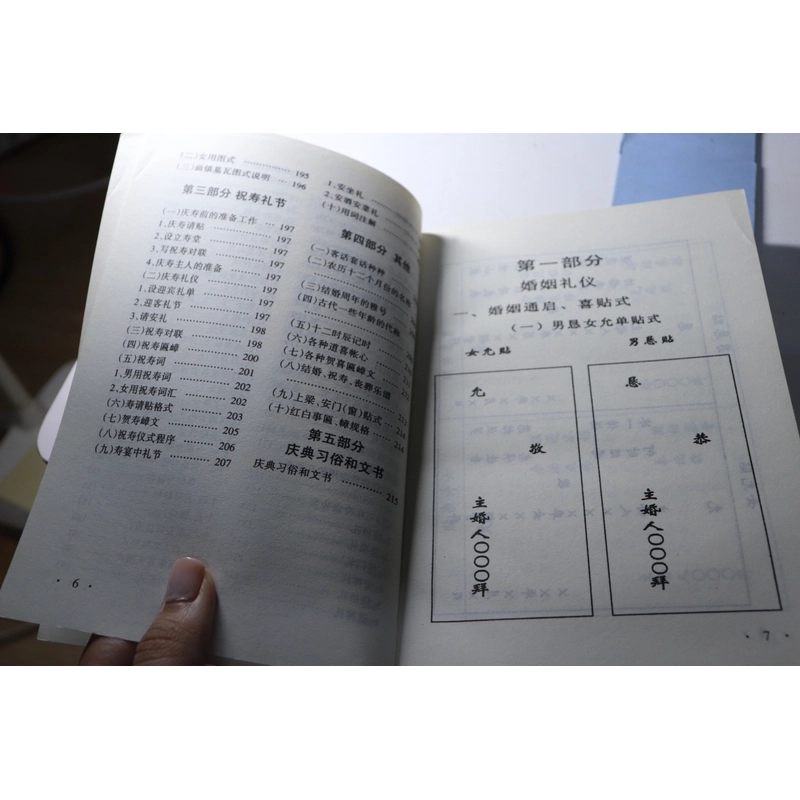 (二)女用图式 …… 195
(三)前镇墓瓦图式说明 …… 196
第三部分 祝寿礼节
(一)庆寿前的准备工作 … 197
1、庆寿请贴 …… 197
2、设立寿堂 …… 197
3、写祝寿对联 …… 197
4、庆寿主人的准备 …… 197
(二)庆寿礼仪 …… 197
1、设迎宾礼单 …… 197
2、迎客礼节 …… 197
3、请安礼 …… 198
(三)祝寿对联 …… 198
(四)祝寿匾嶂 …… 200
(五)祝寿词 …… 201
1、男用祝寿词 …… 201
2、女用祝寿词汇 …… 202
(六)寿请贴格式 …… 203
(七)贺寿嶂文 …… 205
(八)祝寿仪式程序 …… 206
(九)寿宴中礼节 …… 207
1、安坐礼
2、安酒安菜礼
(十)用词注解
第四部分 其他
(一)客话套话种种
(二)农历十二个月份的名称
(三)结婚周年的雅号
(四)古代一些年龄的代称
(五)十二时辰记时
(六)各种道喜帐心
(七)各种贺喜匾嶂文
(八)结婚、祝寿、丧葬乐谱
(九)上梁、安门(窗)贴式
(十)红白事匾、嶂规格 … 214
第五部分
庆典习俗和文书
庆典习俗和文书 …… 215
· 6 ·
第一部分
婚姻礼仪
一、婚姻通启、喜贴式
(一)男恳女允单贴式
女允贴
男恳贴
允
敬
主婚人〇〇〇拜
恳
恭
主婚人〇〇〇拜
· 7 ·